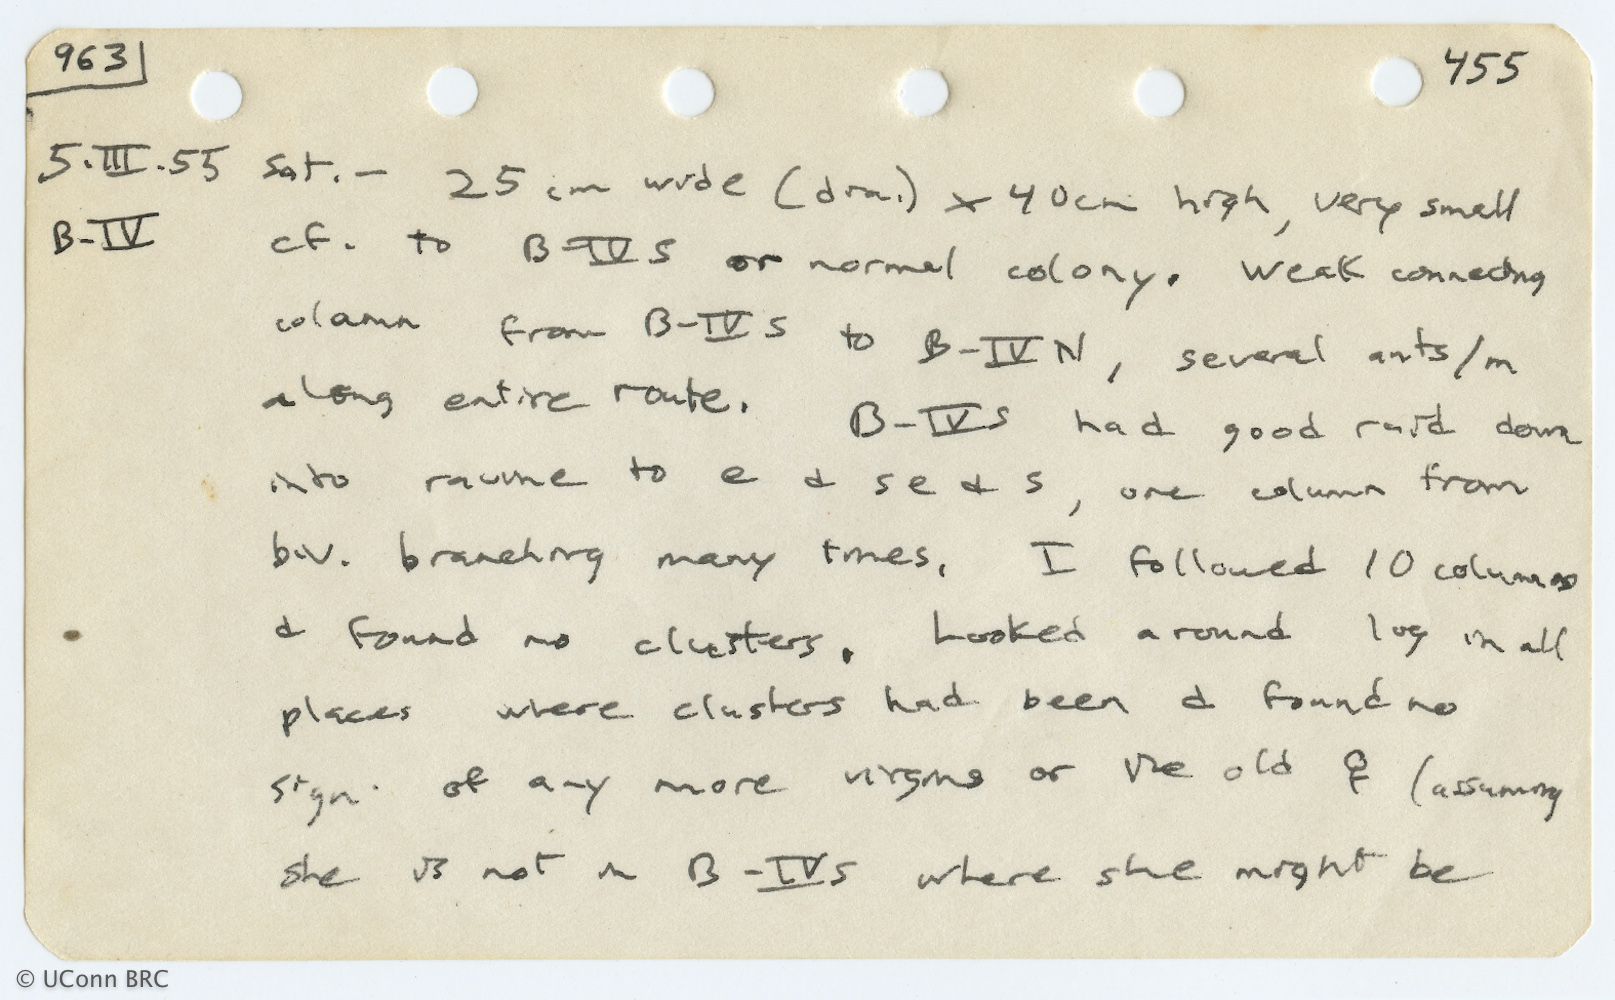 963
455
5.III.55 Sat. — 25 cm wide (dia.) x 40cm high, very small
B-IV cf. to B-IV S or normal colony. Weak connecting
column from B-IV S to B-IV N, several ants/m
along entire route. B-IV S had good raid down
into ravine to e & se & s, one column from
biv. branching many times. I followed 10 columns
& found no clusters. Looked around log in all
places where clusters had been & found no
sign of any more virgins or the old ♀ (assuming
she is not in B-IV S where she might be
© UConn BRC